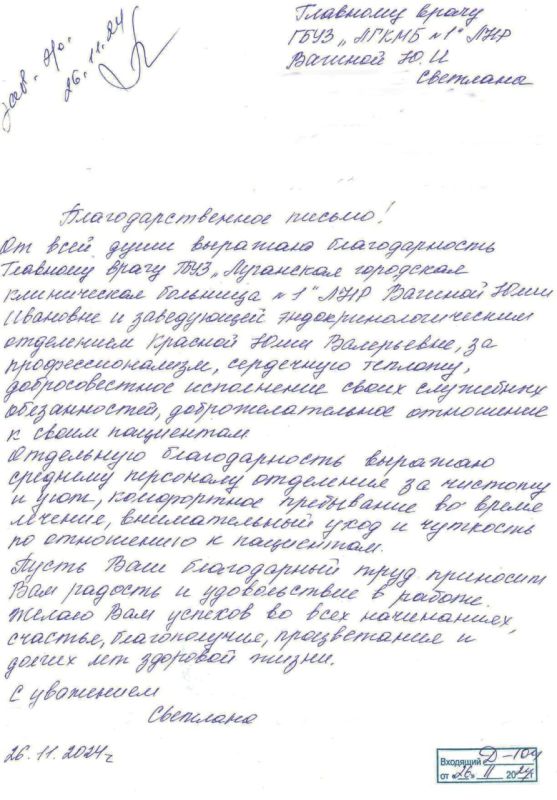 зав. эро.
26.11.24
Главному врачу
ГБУЗ „ЛГКМБ №1" ЛНР
Вагиной Ю.И
Светлана
Благодарственное письмо!
От всей души выражала благодарность
Главному врачу ГБУЗ „Луганская городская
клиническая больница №1" ЛНР Вагиной Юлии
Ивановне и заведующей эндокринологическим
отделением Красной Юлии Валерьевне, за
профессионализм, сердечную теплоту,
добросовестное исполнение своих служебных
обезанностей, доброжелательное отношение
к своим пациентам
Отдельную благодарность выражаю
среднему персоналу отделения за чистоту
и уют, комфортное пребывание во время
лечение, внимательный уход и чуткость
по отношению к пациентам.
Пусть Ваш благодарный труд приносит
Вам радость и удовольствие в работе.
Желаю Вам успехов во всех начинаниях,
счастье, благополучие, процветание и
долгих лет здоровой жизни.
С уважением
Светлана
26.11.2024г
Входящий Д-104
от «26» 11 2024г